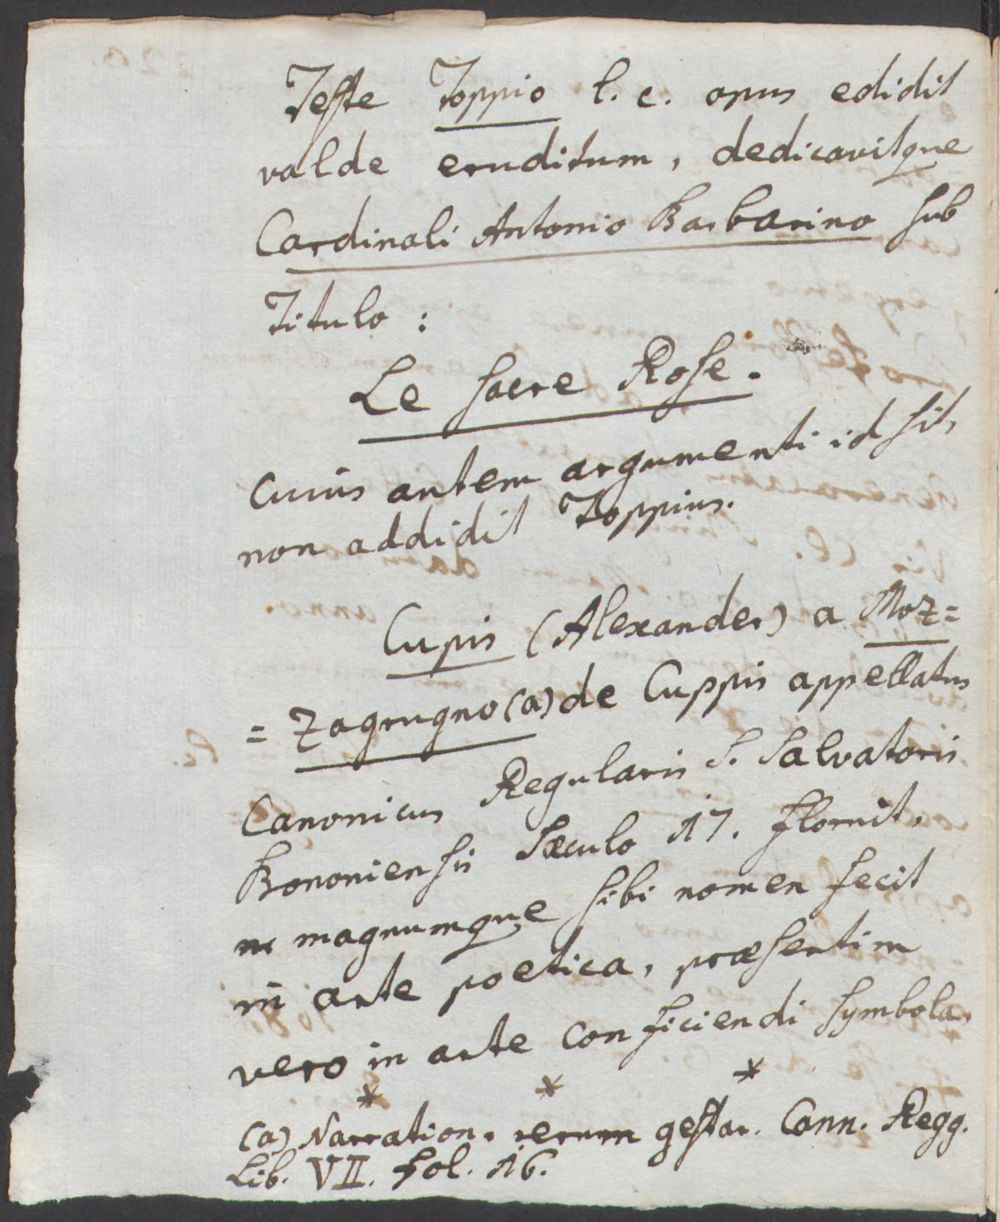 Teste Toppio l. c. opus edidit
valde eruditum, dedicavitque
Cardinali Antonio Barbarino sub
Titulo :
Le sacre Rose.
Cuius autem argumenti id sit,
non addidit Toppius.
Cupis (Alexander) a Moz=
= zagrugno (a) de Cuppis appellatus
Canonicus Regularis S. Salvatoris
Bononiensis Sæculo 17. floruit,
magnumque sibi nomen fecit
in arte poetica, præsertim
vero in arte conficiendi symbola.
* * *
(a) Narration. rerum gestar. Cann. Regg.
Lib. VII. fol. 16.